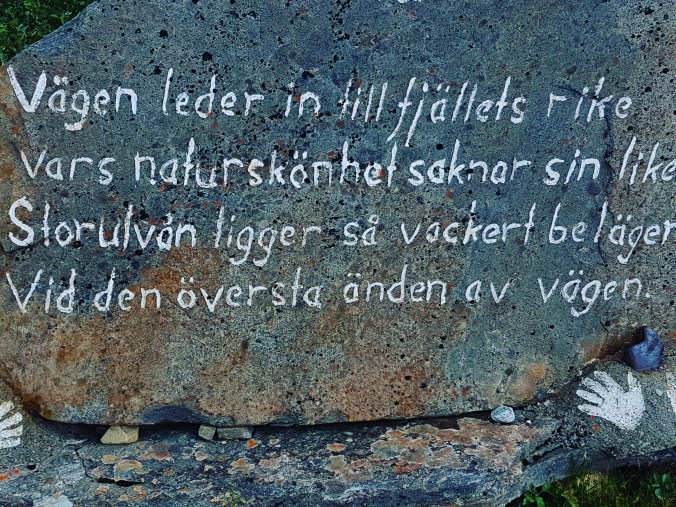 Vägen leder in till fjällets rike
Vars naturskönhet saknar sin like
Storulvån ligger så vackert beläger
Vid den översta änden av vägen.